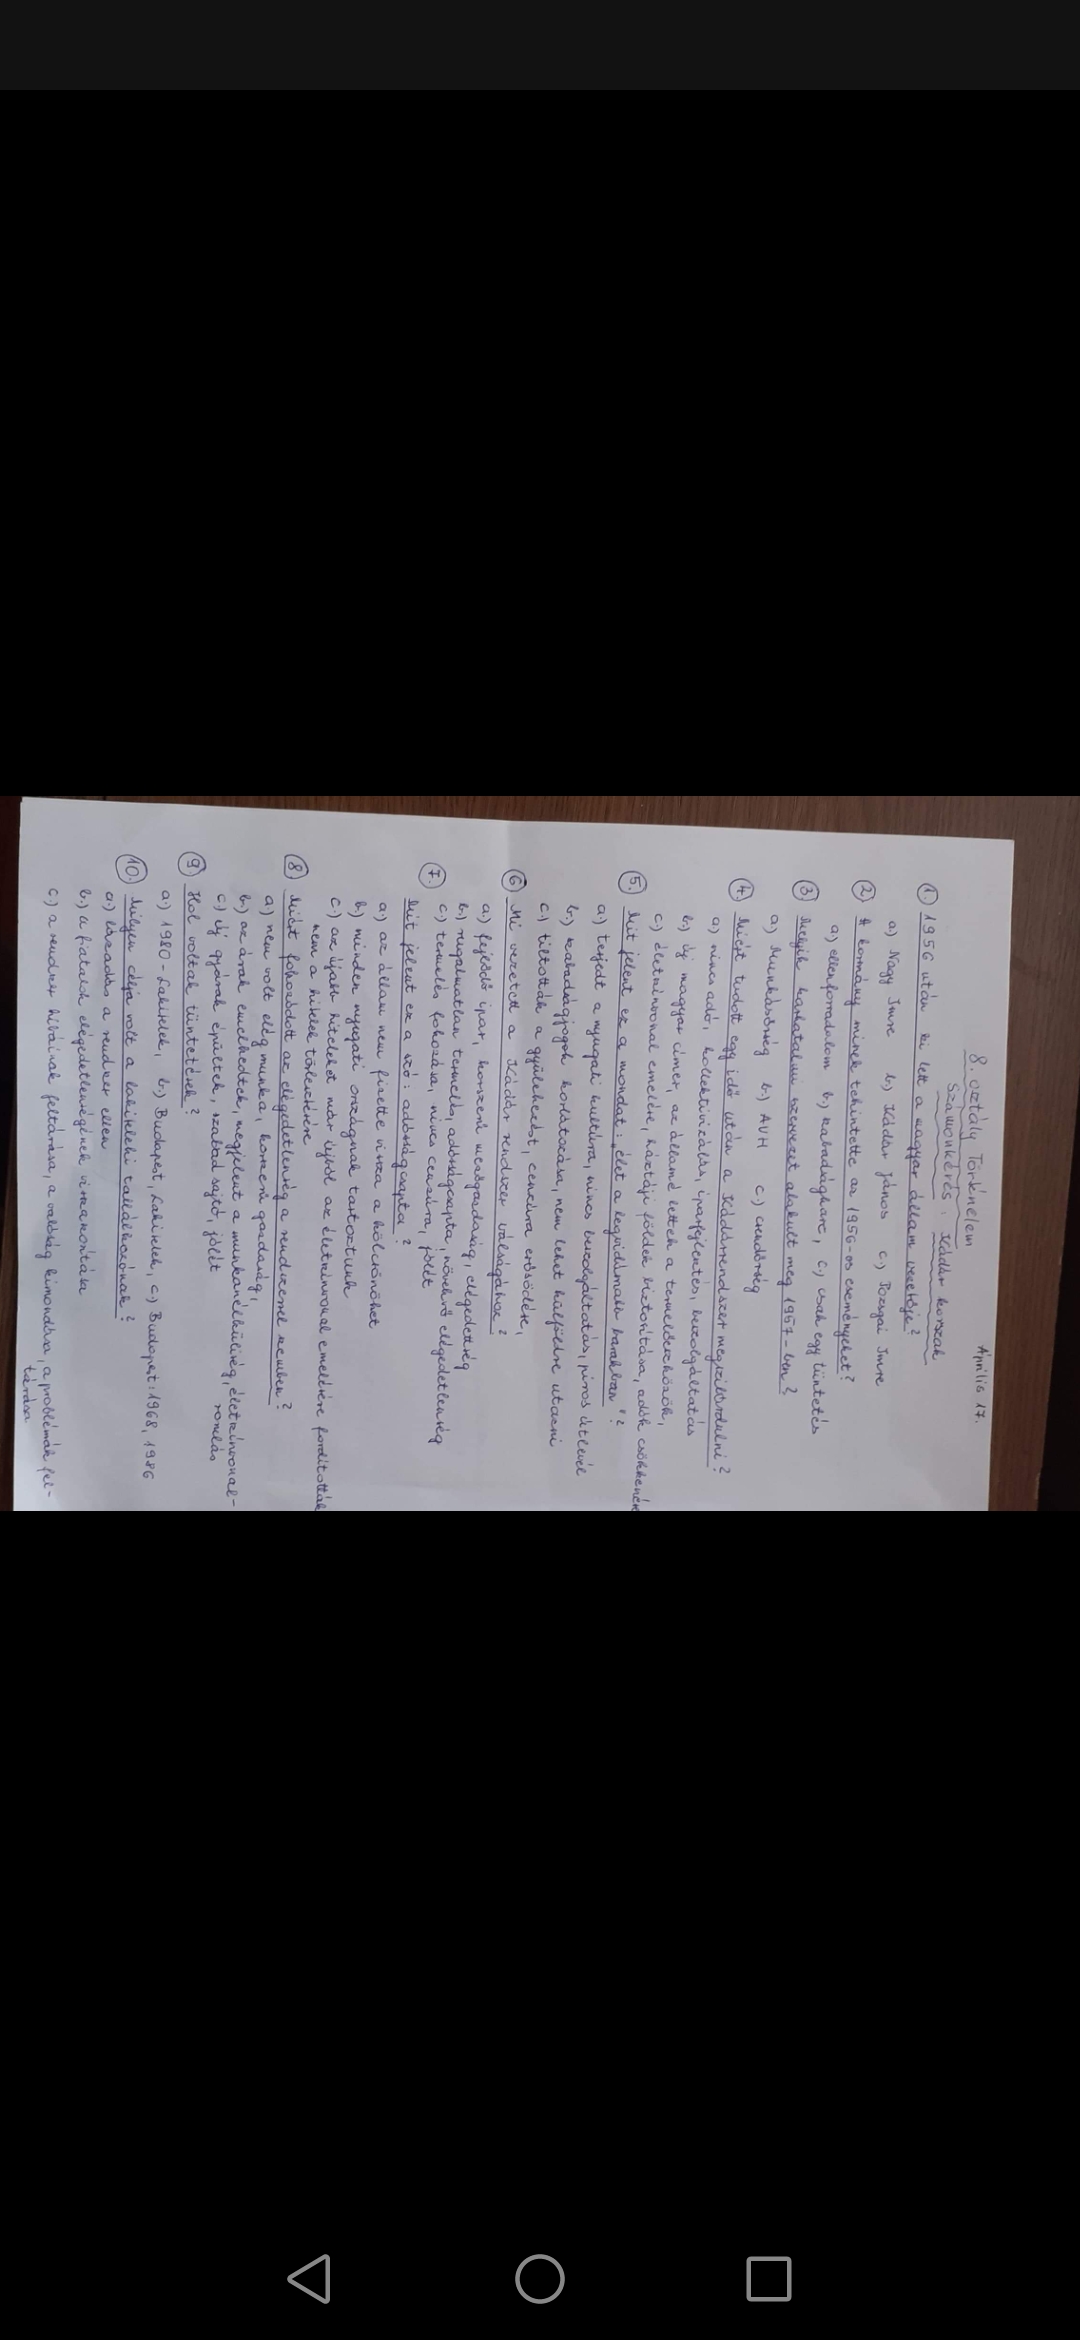 Április 17.
8. osztály Történelem
Számonkérés: Kádár korszak
1. 1956 után ki lett a magyar állam vezetője?
a) Nagy Imre b) Kádár János c) Pozsgai Imre
2. A kormány minek tekintette az 1956-os eseményeket?
a) ellenforradalom b) szabadságharc, c) csak egy tüntetés
3. Melyik hatalmi szervezet alakult meg 1957-ben?
a) Munkásőrség b) AVH c) rendőrség
4. Miért tudott egy idő után a Kádárrendszer megszilárdulni?
a) nincs adó, kollektivizálás, iparfejlesztés, beszolgáltatás
b) új magyar címer, az államé lettek a termelőeszközök,
c) életszínvonal emelése, háztáji földek biztosítása, adók csökkenése
5. Mit jelent ez a mondat: „élet a legvidámabb barakban"?
a) terjedt a nyugati kultúra, nincs beszolgáltatás, piros útlevél
b) szabadságjogok korlátozása, nem lehet külföldre utazni
c) tiltották a gyülekezést, cenzúra erősödése,
6. Mi vezetett a Kádár rendszer válságához?
a) fejlődő ipar, korszerű mezőgazdaság, elégedettség
b) rugalmatlan termelés, adósságcsapta, növekvő elégedetlenség
c) termelés fokozása, nincs cenzúra, jólét
7. Mit jelent ez a szó: adósságcsapta?
a) az állam nem fizette vissza a kölcsönöket
b) minden nyugati országnak tartoztunk
c) az újabb hiteleket már újból az életszínvonal emelésére fordították
nem a hitelek törlesztésére
8. Miért fokozódott az elégedetlenség a rendszerrel szemben?
a) nem volt elég munka, korszerű gazdaság,
b) az árak emelkedtek, megjelent a munkanélküliség, életszínvonal-
romlás
c) új gyárak épültek, szabad sajtó, jólét
9. Hol voltak tüntetések?
a) 1980-Lakitelek, b) Budapest, Lakitelek, c) Budapest: 1968, 1986
10. Milyen célja volt a lakiteleki találkozónak?
a) lázadás a rendszer ellen
b) a fiatalok elégedetlenségének visszaszorítása
c) a rendszer hibáinak feltárása, a valóság kimondása, a problémák fel-
tárása